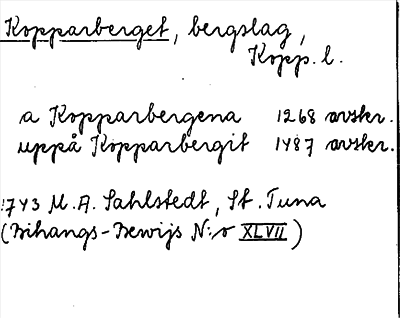 Kopparberget, bergslag,
Kopp. l.
a Kopparbergena 1268 avskr.
uppå Kopparbergit 1487 avskr.
1743 M. A. Sahlstedt, St. Tuna
(Bihangs-Bewijs N:o XLVII)